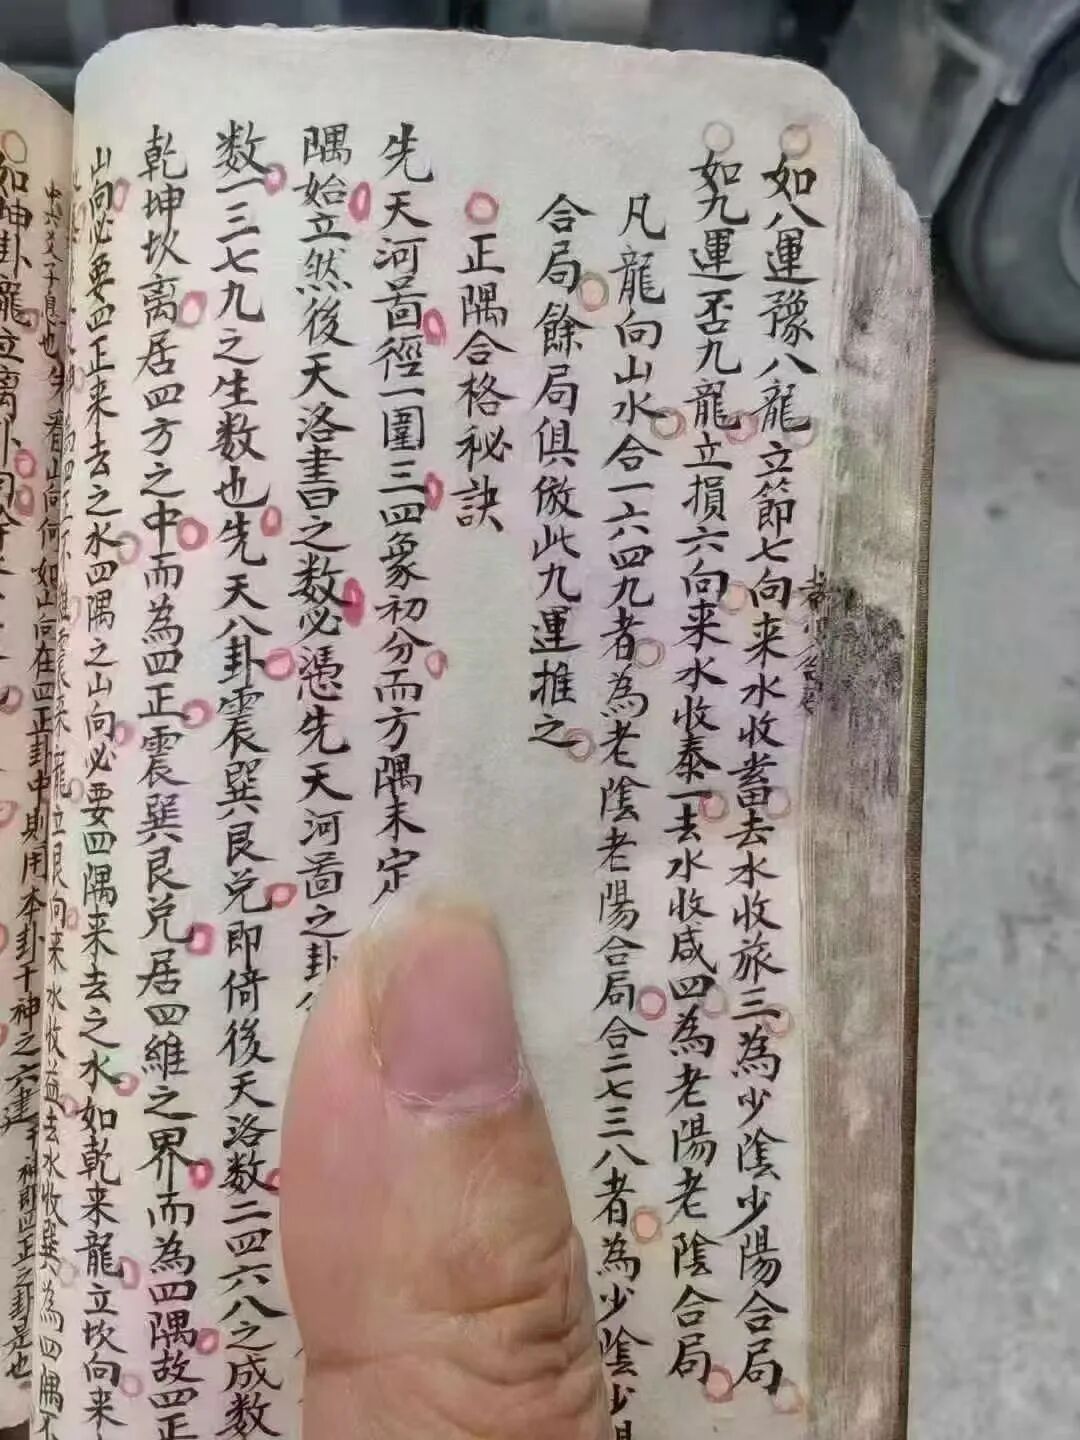 如八運豫八龍立節七向来水收畜去水收旅三為少陰少陽合局
如九運否九龍立損六向来水收泰一去水收咸四為老陽老陰合局
凡龍向山水合一六四九者為老陰老陽合局合二七三八者為少陰少
合局餘局俱倣此九運推之
正隅合格秘訣
先天河啚徑一圍三四象初分而方隅未定
隅始立然後天洛書之数必憑先天河啚之卦
数一三七九之生数也先天八卦震巽艮兑即倚後天洛数二四六八之成数
乾坤坎离居四方之中而為四正震巽艮兑居四維之界而為四隅故四正
山向必要四正来去之水四隅之山向必要四隅来去之水如乾来龍立坎向来
震来龍立艮向来水收益去水收巽為四隅不
看山向何如山向在四正卦中則用本卦干神之六建干神即四正之卦是也
如坤卦龍立離卦